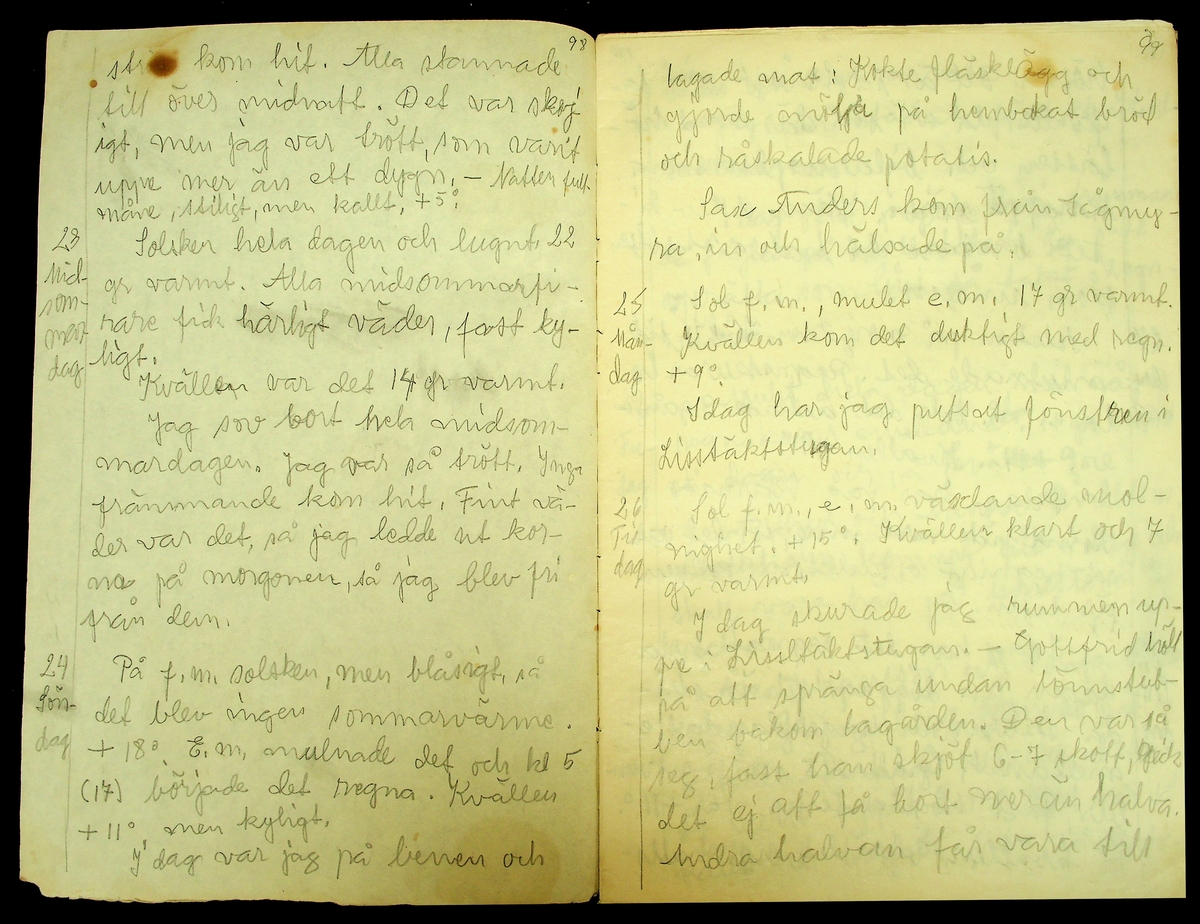 98
kom hit. Alla stannade
till över midnatt. Det var skoj-
igt, men jag var trött, som varit
uppe mer än ett dygn. – Natten full-
måne, stiligt, men kallt, +5°.
23
Mid-
som-
mar
dag
Solsken hela dagen och lugnt. 22
gr varmt. Alla midsommarfi-
rare fick härligt väder, fast ky-
ligt.
Kvällen var det 14 gr varmt.
Jag sov bort hela midsom-
mardagen. Jag var så trött. Inga
främmande kom hit. Fint vä-
der var det, så jag ledde ut kor-
na på morgonen, så jag blev fri
från dem.
24
Sön-
dag
På f.m. solsken, men blåsigt, så
det blev ingen sommarvärme.
+18°. E.m. mulnade det och kl 5
(17) började det regna. Kvällen
+11°, men kyligt.
I dag var jag på benen och
99
lagade mat: Kokte fläsklägg och
gjorde mölja på hembakat bröd
och råskalade potatis.
Sax Anders kom från Sågmy-
ra, in och hälsade på.
25
Mån-
dag
Sol f.m., mulet e.m. 17 gr varmt.
Kvällen kom det duktigt med regn.
+9°.
Idag har jag putsat fönstren i
Lisstäktstugan.
26
Tis
dag
Sol f.m., e.m. växlande mol-
nighet. +15°. Kvällen klart och 7
gr varmt.
I dag skurade jag rummen up-
pe i Lissltäktstugan. – Gottfrid höll
på att spränga undan lönnstub-
ben bakom lagården. Den var så
seg, fast han skjöt 6-7 skott, gick
det ej att få bort mer än halva.
Andra halvan får vara till